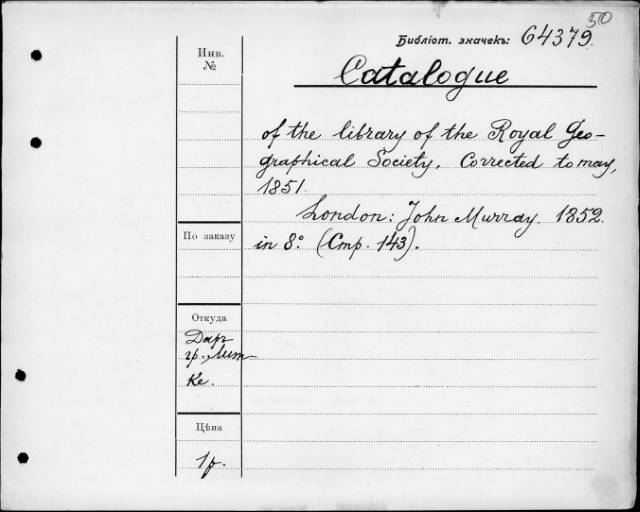 50
Библіот. значекъ: 64379.
Инв.
№
Catalogue
of the library of the Royal Geo-
graphical Society. Corrected to may,
1851.
London: John Murray. 1852.
in 8º. (Стр. 143).
По заказу
Откуда
Даръ
гр. Лит-
ке.
Цѣна
1 р.